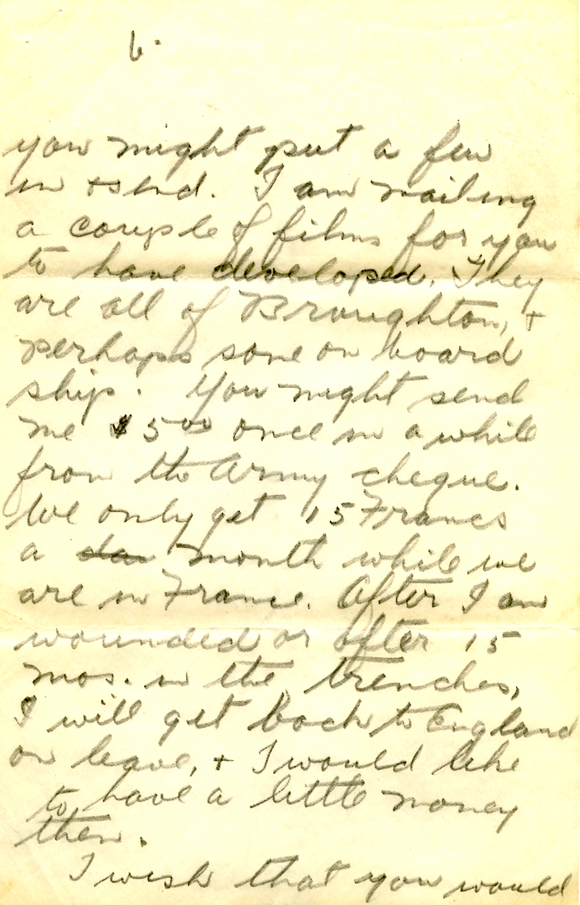 6.
you might put a few
in & send. I am mailing
a couple of films for you
to have developed. They
are all of Broughton, &
perhaps some on board
ship. You might send
me $5.00 once in a while
from the Army cheque.
We only get 15 Francs
a day month while we
are in France. After I am
wounded or after 15
mos. in the trenches,
I will get back to England
on leave, & I would like
to have a little money
then.
I wish that you would